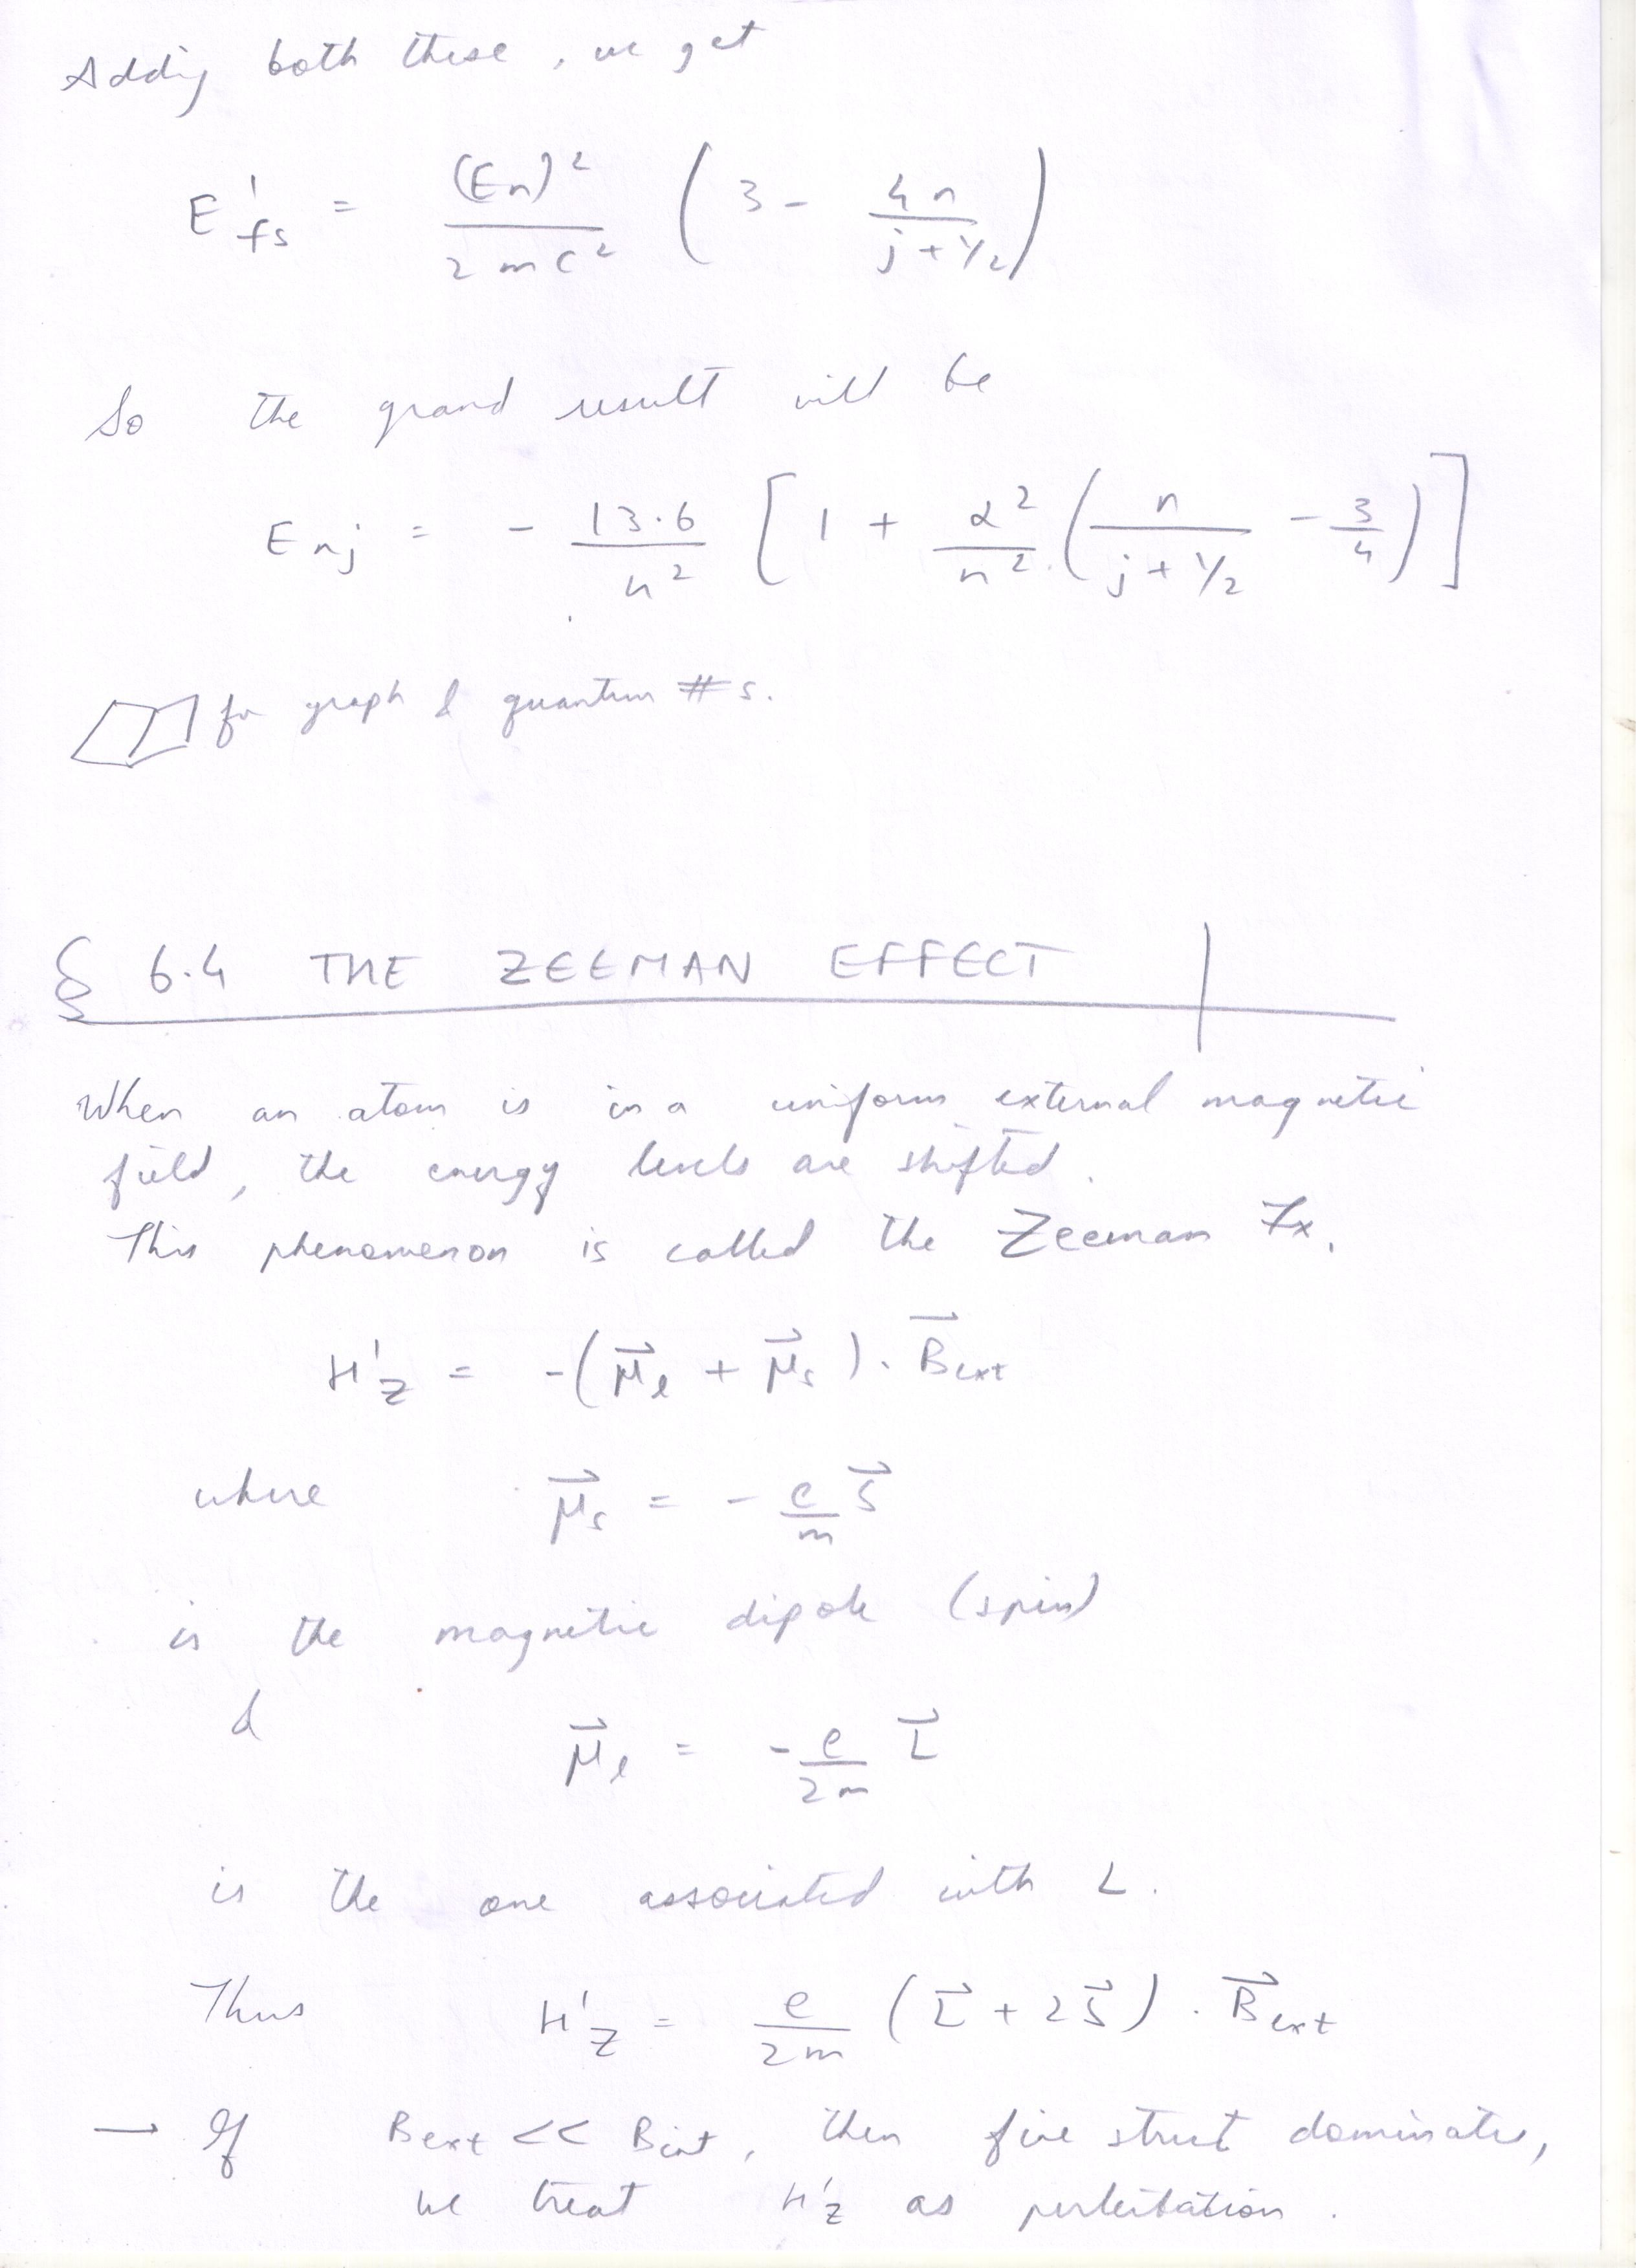 Adding both these, we get
E'fs = (En)² / 2mc² (3 - 4n / j+1/2)
So the grand result will be
Enj = - 13.6 / n² [1 + α² / n² (n / j+1/2 - 3/4)]
for graph & quantum #s.
§ 6.4 THE ZEEMAN EFFECT
When an atom is in a uniform external magnetic
field, the energy levels are shifted.
This phenomenon is called the Zeeman Fx.
H'Z = -(μ⃗l + μ⃗s) · B⃗ext
where μ⃗s = - e/m S⃗
is the magnetic dipole (spin)
& μ⃗l = - e/2m L⃗
is the one associated with L.
Thus H'Z = e/2m (L⃗ + 2S⃗) · B⃗ext
→ If Bext << Bint, then fine struct dominates,
we treat H'Z as perturbation.